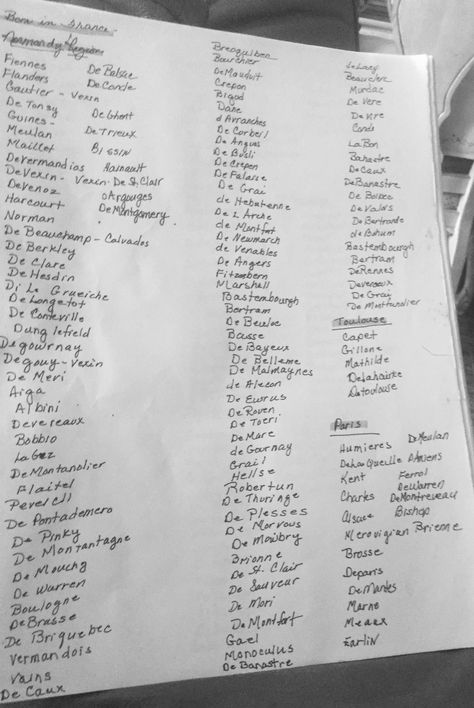 Born in France
Normandy Region
Fiennes De Balsac
Flanders De Conde
Gautier - Vexin
De Tonsy De Ghent
Guines -
Meulan De Trieux
Maillet Blssin
Devermandios Hainault
DeVexin - Vexin - De St. Clair
Devenoz dArgouges
Harcourt DeMontgomery
Norman
De Beauchamp - Calvados
De Berkley
De Clare
De Hesdin
Di La Grueiche
De Longetot
De Conteville
Dunglefield
Degournay
Degouy - Vexin
De Meri
Aiga
Albini
Devereaux
Bobbio
LaGoz
DeMontanolier
Flaitel
Pevelell
De Pontademero
De Pinky
De Montantagne
De Mouchy
De Warren
Boulogne
DeBrasse
De Briquebec
Vermandois
Vains
De Caux
Breoquiben
Bourchier
DeMauduit
Crepon
Bigod
Dane
d Avranches
De Corbeil
De Angus
De Busli
De Crepon
De Falaise
De Grai
de Hebutenne
De L Arche
de Montfort
De Neumarch
de Venables
De Angers
Fitzosbern
Marshall
Bastembourgh
Bertram
De Beuloe
Basse
De Bayeux
De Belleme
De Malmaynes
de Alecon
De Eurus
De Roven
De Toeri
DeMare
de Gournay
Grail
Hellse
Robertun
De Thuringe
De Plesses
De Morvous
De Mowbry
Brionne
De St. Clair
De Sauveur
De Mori
De Montfort
Gael
Monoculus
De Banastre
de Lacy
Beauclerc
Murdac
De Vere
De Vire
Conds
La Bon
Banastre
De Caux
DeBanastre
De Bolbec
De Valois
De Bertrande
de Bohum
Bastembourgh
Bertram
DeRennes
Devereaux
De Grai
De Montanolier
Toulouse
Capet
Gillone
Mathilde
Delahaizke
Detoulouse
Paris
Humieres DeMeulan
DeLaQueille DAmiens
Kent Ferrol
Charks DeWarren
DeMontreveau
Alsace Bishop
Merovigian Brienne
Brosse
Deparis
DeMantes
Marne
Meaux
Earlin